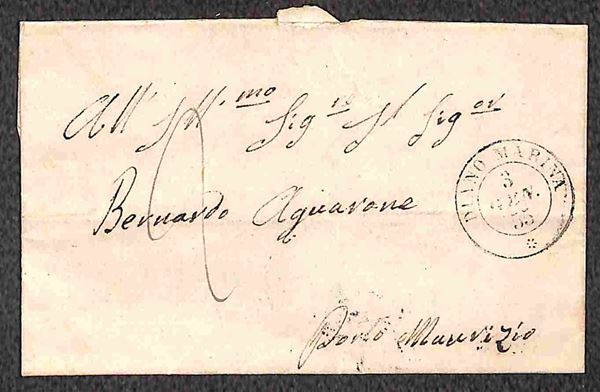 All' Ill.mo Sig.re Il Sig.or
Bernardo Aguarone
Porto Maurizio
DIANO MARINA
3
GEN.
53